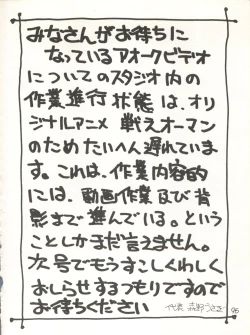 みなさんがお待ちに
なっているアオークビデオ
についてのスタジオ内の
作業進行状態は、オリ
ジナルアニメ 戦えオーマン
のためたいへん遅れていま
す。これは、作業内容的
には、動画作業及び背
景まで進んでいる。という
ことしかまだ言えません。
次号でもうすこしくわしく
おしらせするつもりですので
お待ちください
代表